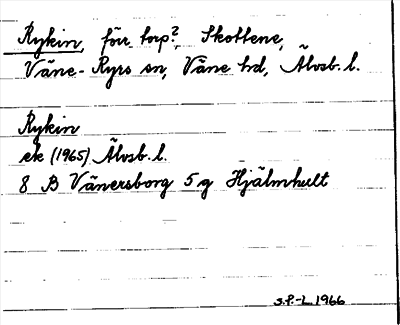 Rykin, förr torp?, Skottene,
Väne-Ryrs sn, Väne hd, Älvsb. l.
Rykin
ek (1965) Älvsb. l.
8 B Vänersborg 5 g Hjälmhult
S.P.-L 1966